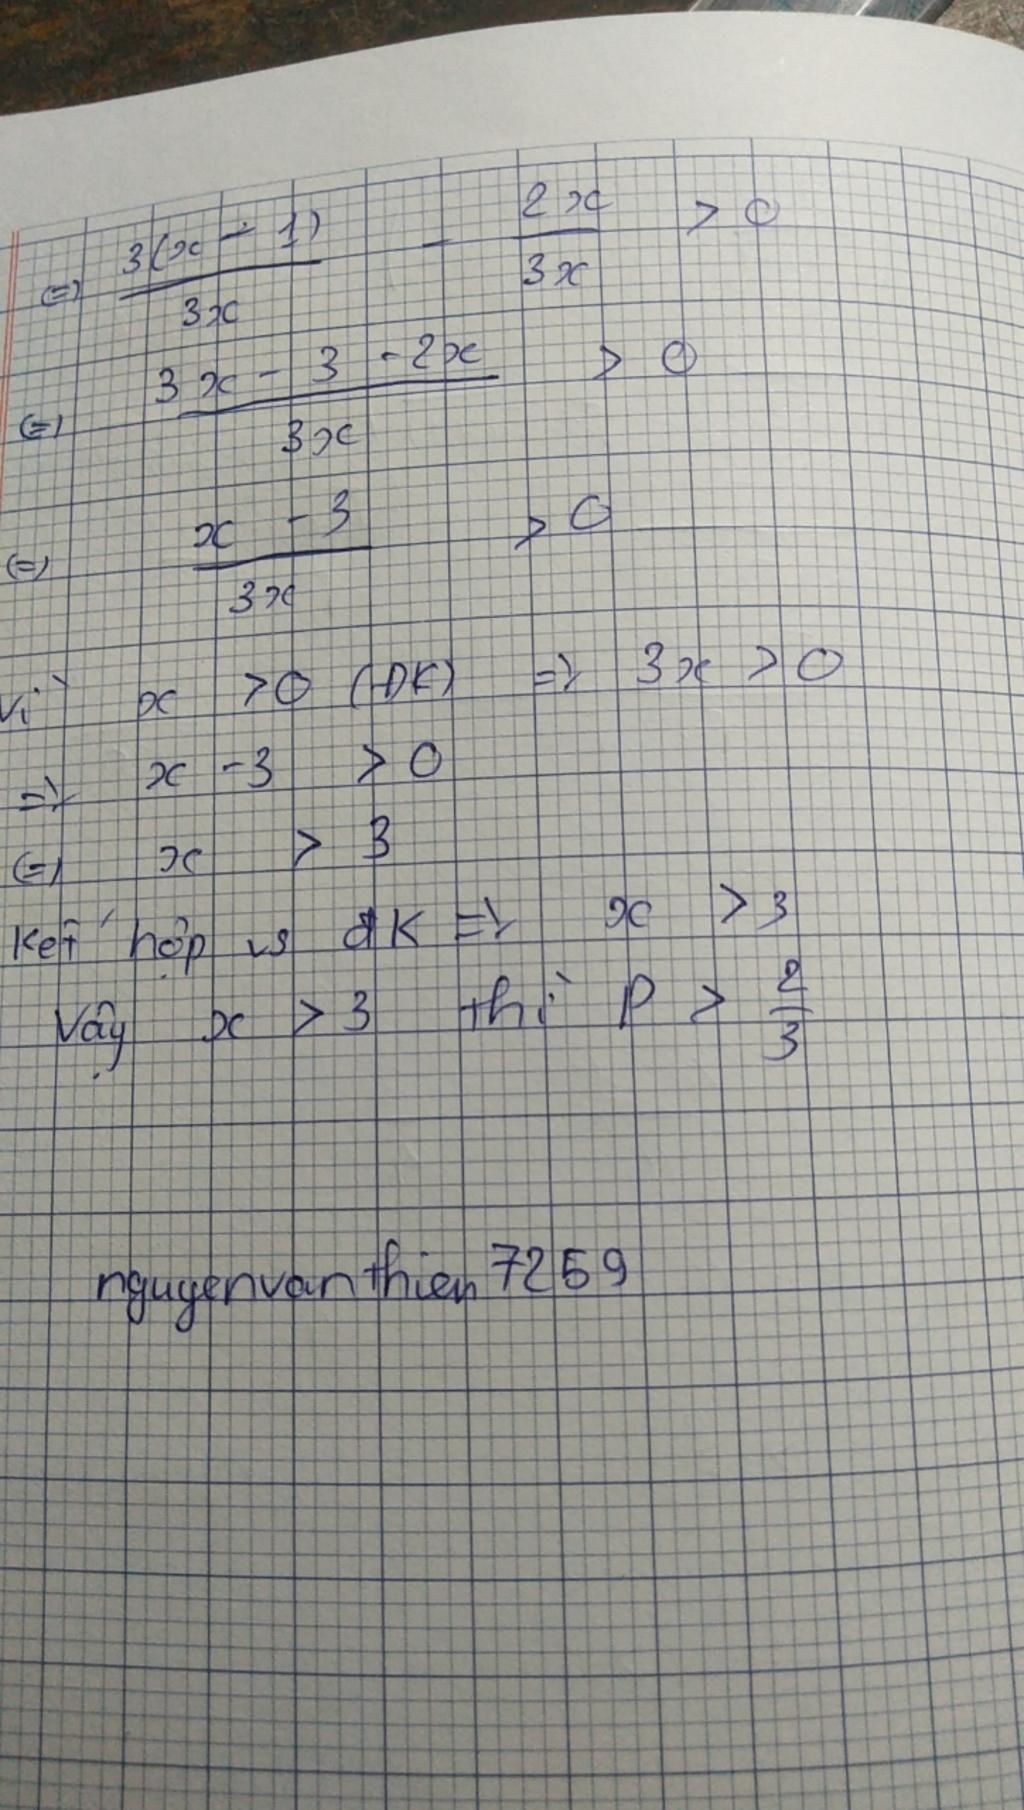 (=) 3(x - 1)/3x - 2x/3x > 0
(=) 3x - 3 - 2x/3x > 0
(=) x - 3/3x > 0
Vì x > 0 (ĐK) => 3x > 0
=> x - 3 > 0
(=) x > 3
Kết hợp vs đK => x > 3
Vậy x > 3 thì P > 2/3
nguyenvanthien7259